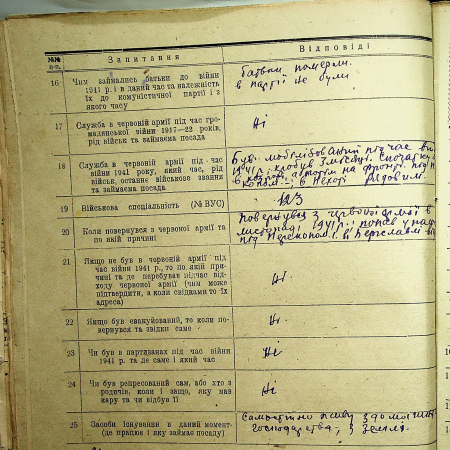 №№ п-п.
Запитання
Відповіді
16
Чим займались батьки до війни
1941 р. і в даний час та належність
їх до комуністичної партії і з
якого часу
батьки померли.
в партії не були
17
Служба в червоній армії під час гро-
мадянської війни 1917—22 років,
рід військ та займаєма посада
Ні
18
Служба в червоній армії під час
війни 1941 року, який час, рід
військ, останнє військове звання
та займаєма посада
Був мобілізований під час
1941 р. 3 місяці. Спочатку
на фронті під
в піхоті рядовим.
19
Військова спеціальність (№ ВУС)
123
20
Коли повернувся з червоної армії та
по якій причині
Повернувся з червоної армії в
листопаді 1941 р., попав у
під
21
Якщо не був в червоній армії під
час війни 1941 р., то по якій при-
чині та де перебував підчас від-
ходу червоної армії (чим може
підтвердити, а коли свідками то їх
адреса)
Ні.
22
Якщо був евакуйований, то коли по-
вернувся та звідки саме
Ні.
23
Чи був в партизанах під час війни
1941 р. та де саме і який час
Ні
24
Чи був репресований сам, або хто з
родичів, коли і защо, яку мав
кару та чи відбув її
Ні
25
Засоби існування в даний момент
(де працює і яку займає посаду)
Самостійно живу з домашнього
господарства, з землі.